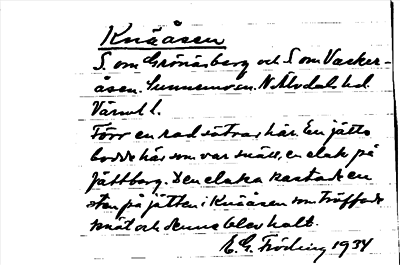 Knäåsen
S. om Grönåsberg och S om Vacker-
åsen. Gunnemoren. N. Älvdals hd.
Värml l.
Förr en rad sätrar här. En jätte
bodde här som var snäll, en elak på
Jättberg. Den elaka kastade en
sten på jätten i Knäåsen som träffade
knät och denne blev halt.
E. G. Fröding 1934